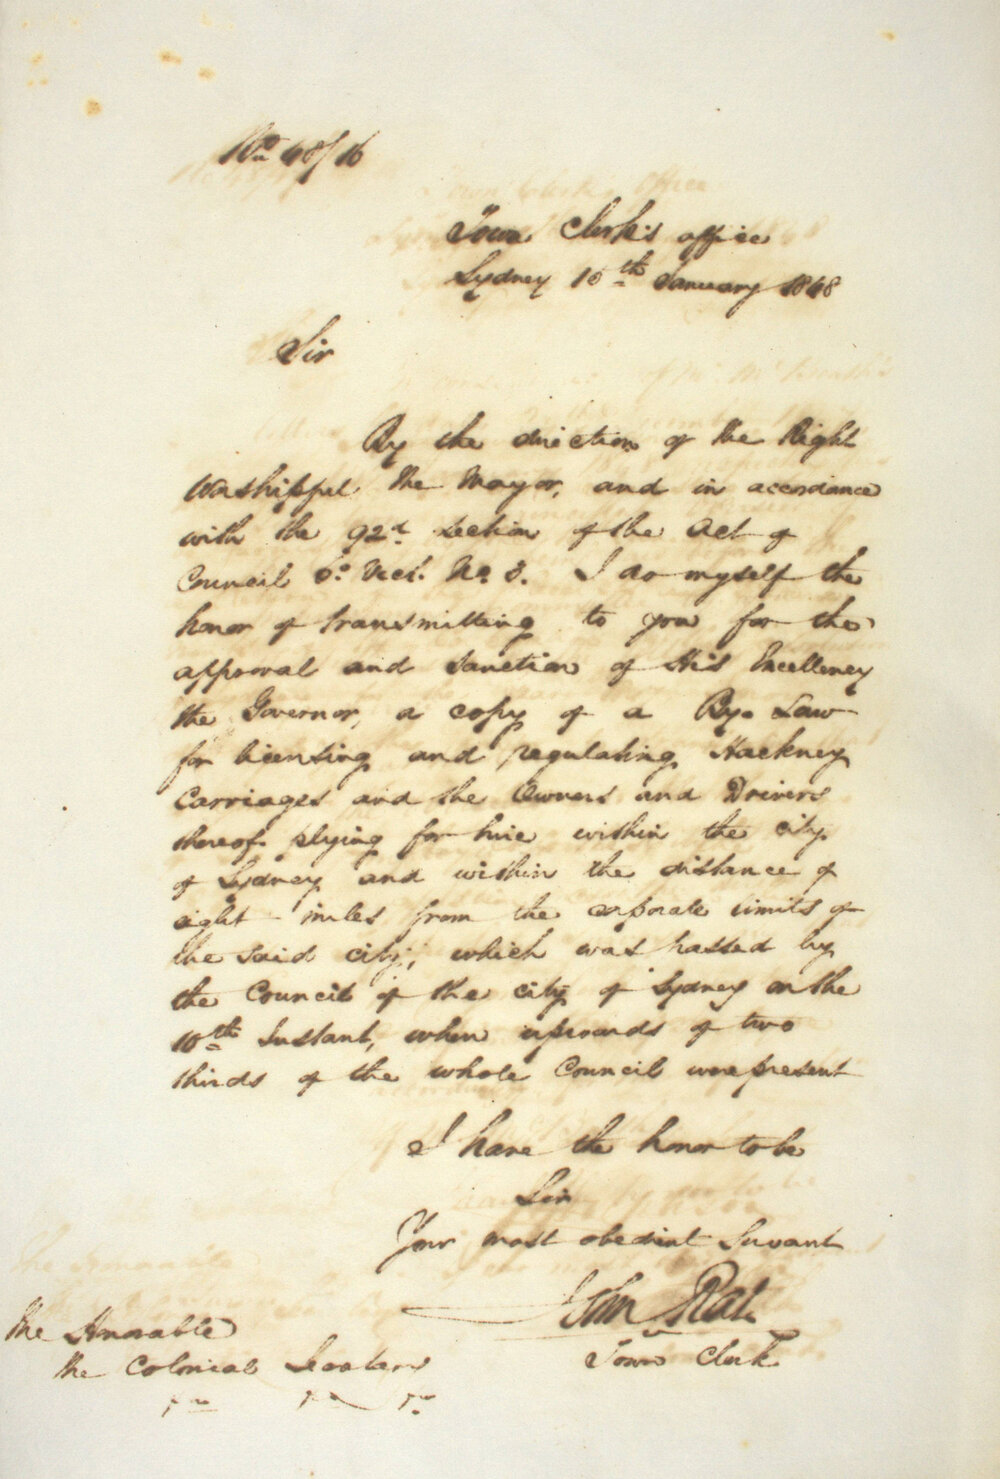 No. 48/16
Town Clerk's office
Sydney 15th January 1848
Sir
By the direction of the Right
Worshipful the Mayor, and in accordance
with the 92d Section of the Act of
Council 6o Vict. No. 3. I do myself the
honor of transmitting to you for the
approval and sanction of His Excellency
the Governor, a copy of a Bye Law
for licensing and regulating Hackney
Carriages and the Owners and Drivers
thereof plying for hire within the city
of Sydney and within the distance of
eight miles from the corporate limits of
the said city, which was passed by
the Council of the city of Sydney on the
10th Instant, when upwards of two
thirds of the whole Council were present
I have the honor to be
Sir
Your most obedient Servant
John
Town Clerk
The Honorable
the Colonial Secretary